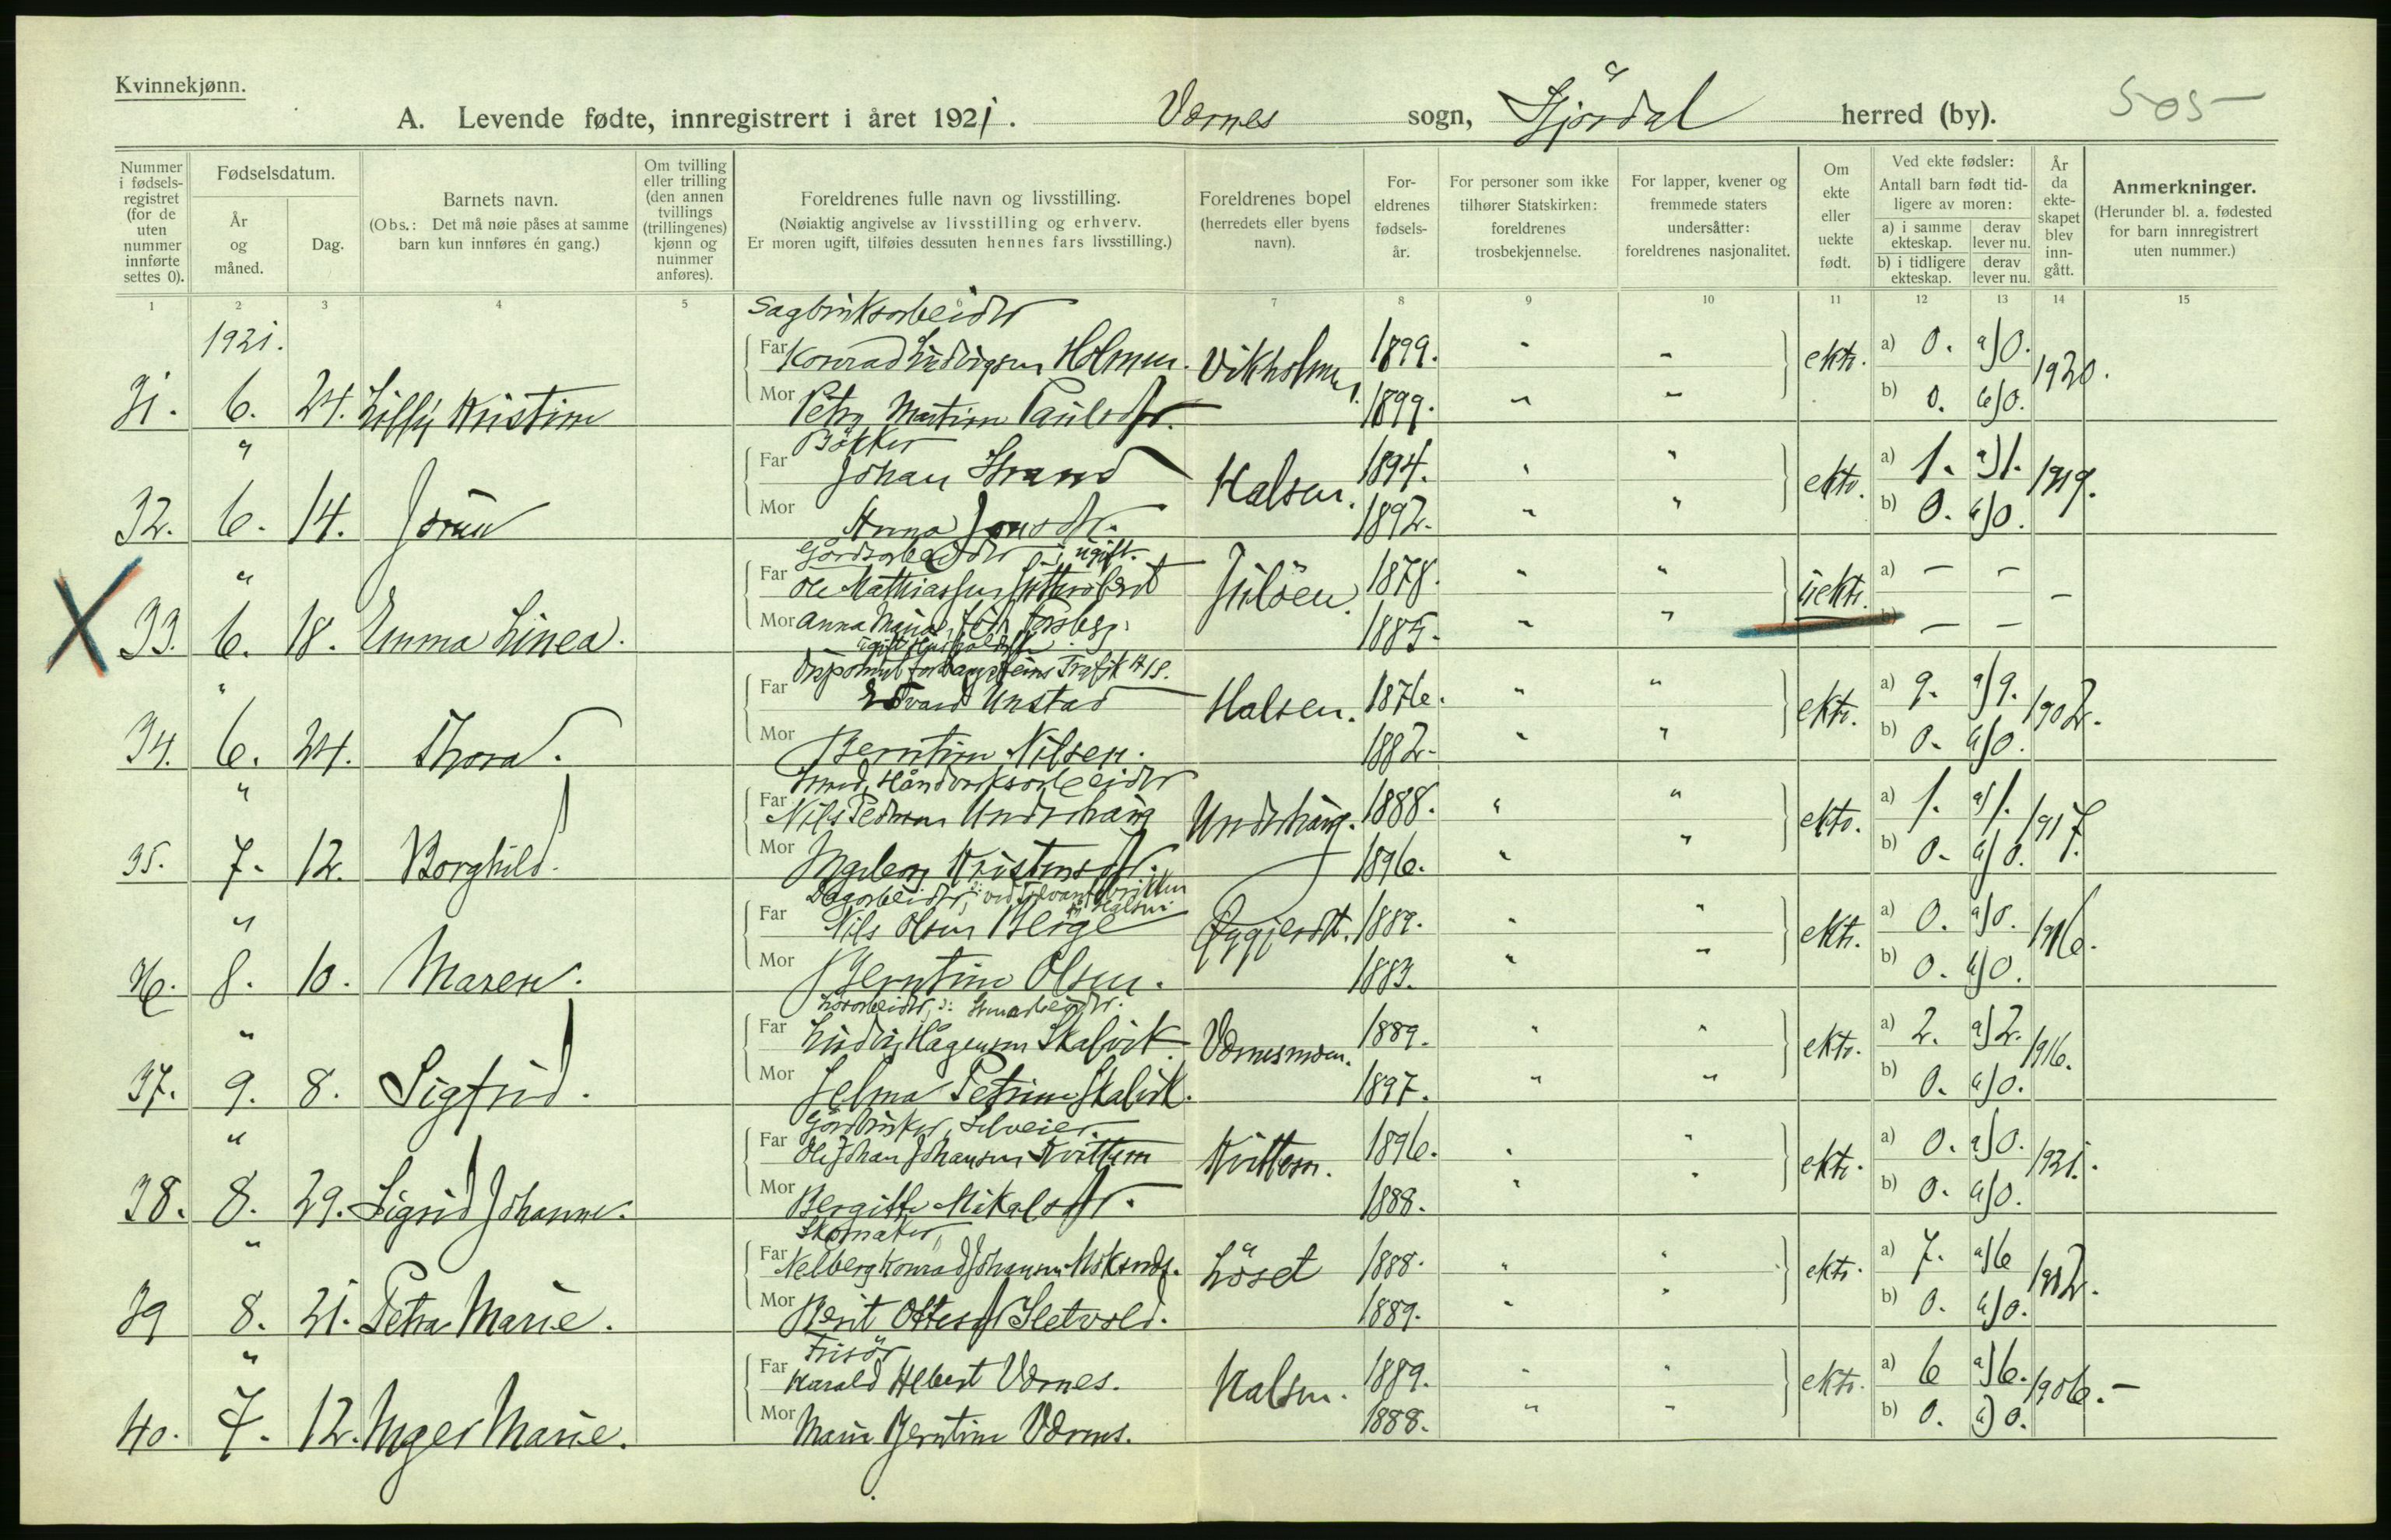 Kvinnekjønn.
A. Levende fødte, innregistrert i året 1921. Værnes sogn, Stjørdal herred (by). 505
Nummer i fødselsregistret (for de uten nummer innførte settes 0).
Fødselsdatum.
År og måned.
Dag.
Barnets navn.
(Obs.: Det må nøie påses at samme barn kun innføres én gang.)
Om tvilling eller trilling (den annen tvillings (trillingenes) kjønn og nummer anføres).
Foreldrenes fulle navn og livsstilling.
(Nøiaktig angivelse av livsstilling og erhverv.
Er moren ugift, tilføies dessuten hennes fars livsstilling.)
Foreldrenes bopel (herredets eller byens navn).
Foreldrenes fødselsår.
For personer som ikke tilhører Statskirken: foreldrenes trosbekjennelse.
For lapper, kvener og fremmede staters undersåtter: foreldrenes nasjonalitet.
Om ekte eller uekte født.
Ved ekte fødsler: Antall barn født tidligere av moren:
a) i samme ekteskap. derav lever nu.
b) i tidligere ekteskap. derav lever nu.
År da ekteskapet blev inngått.
Anmerkninger.
(Herunder bl. a. fødested for barn innregistrert uten nummer.)
1 2 3 4 5 7 8 9 10 11 12 13 14 15
Sagbruksarbeider
1921. Far Konrad Ludvigsen Holmen. Vikholmen. 1899. " " ekte. a) 0. a) 0. 1920.
31. 6. 24. Lilly Kristine Mor Petra Martine Paulsdtr. 1899. " " b) 0. b) 0.
Bøkker
" Far Johan Strand Halsen. 1894. " " ekte. a) 1. a) 1. 1919.
32. 6. 14. Jorun Mor Anna Jonsdtr. 1892. " " b) 0. b) 0.
Gårdsarbeider, ugift.
" Far Ole Mathiassen 1878. " " uekte. a) — — —
33. 6. 18. Emma Linea. Mor Anna Marie Forsberg. 1885. " " b) — —
ugift
Trafik A/S.
" Far Edvard Unstad Halsen. 1876. " " ekte. a) 9. a) 9. 1902.
34. 6. 24. Thora. Mor Berntine Nilsen. 1882. " " b) 0. b) 0.
Smed, Håndverksarbeider
" Far Nils Pedersen Underhaug Underhaug. 1888. " " ekte. a) 1. a) 1. 1917.
35. 7. 12. Borghild. Mor Ingeborg Kristensdtr. 1896. " " b) 0. b) 0.
Dagarbeider, ved på Halsen
" Far Nils Olsen Berge Øygjerdt. 1889. " " ekte. a) 0. a) 0. 1916.
36. 8. 10. Maren. Mor Berntine Olsen. 1883. " " b) 0. b) 0.
" Far Ludvig Hågensen Skalvik Værnesmoen. 1889. " " ekte. a) 2. a) 2. 1916.
37. 9. 8. Sigfrid. Mor Selma Petrine Skalvik. 1897. " " b) 0. b) 0.
Gårdbruker, Selveier.
" Far Ole Johan Johansen Kvittem Kvittem. 1896. " " ekte. a) 0. a) 0. 1921.
38. 8. 29. Sigrid Johanne. Mor Bergitte Mikalsdtr. 1888. " " b) 0. b) 0.
Skomaker,
" Far Nelberg Konrad Johansen Løset 1888. " " ekte. a) 7. a) 6 1912.
39 8. 21. Petra Marie. Mor Berit Ottesdtr. Sletvold. 1889. " " b) 0. b) 0.
Frisør
" Far Harald Albert Værnes. Halsen. 1889. " " ekte. a) 6 a) 6. 1906. —
40. 7. 12. Inger Marie. Mor Marie Berntine Værnes. 1888. " " b) 0. b) 0.